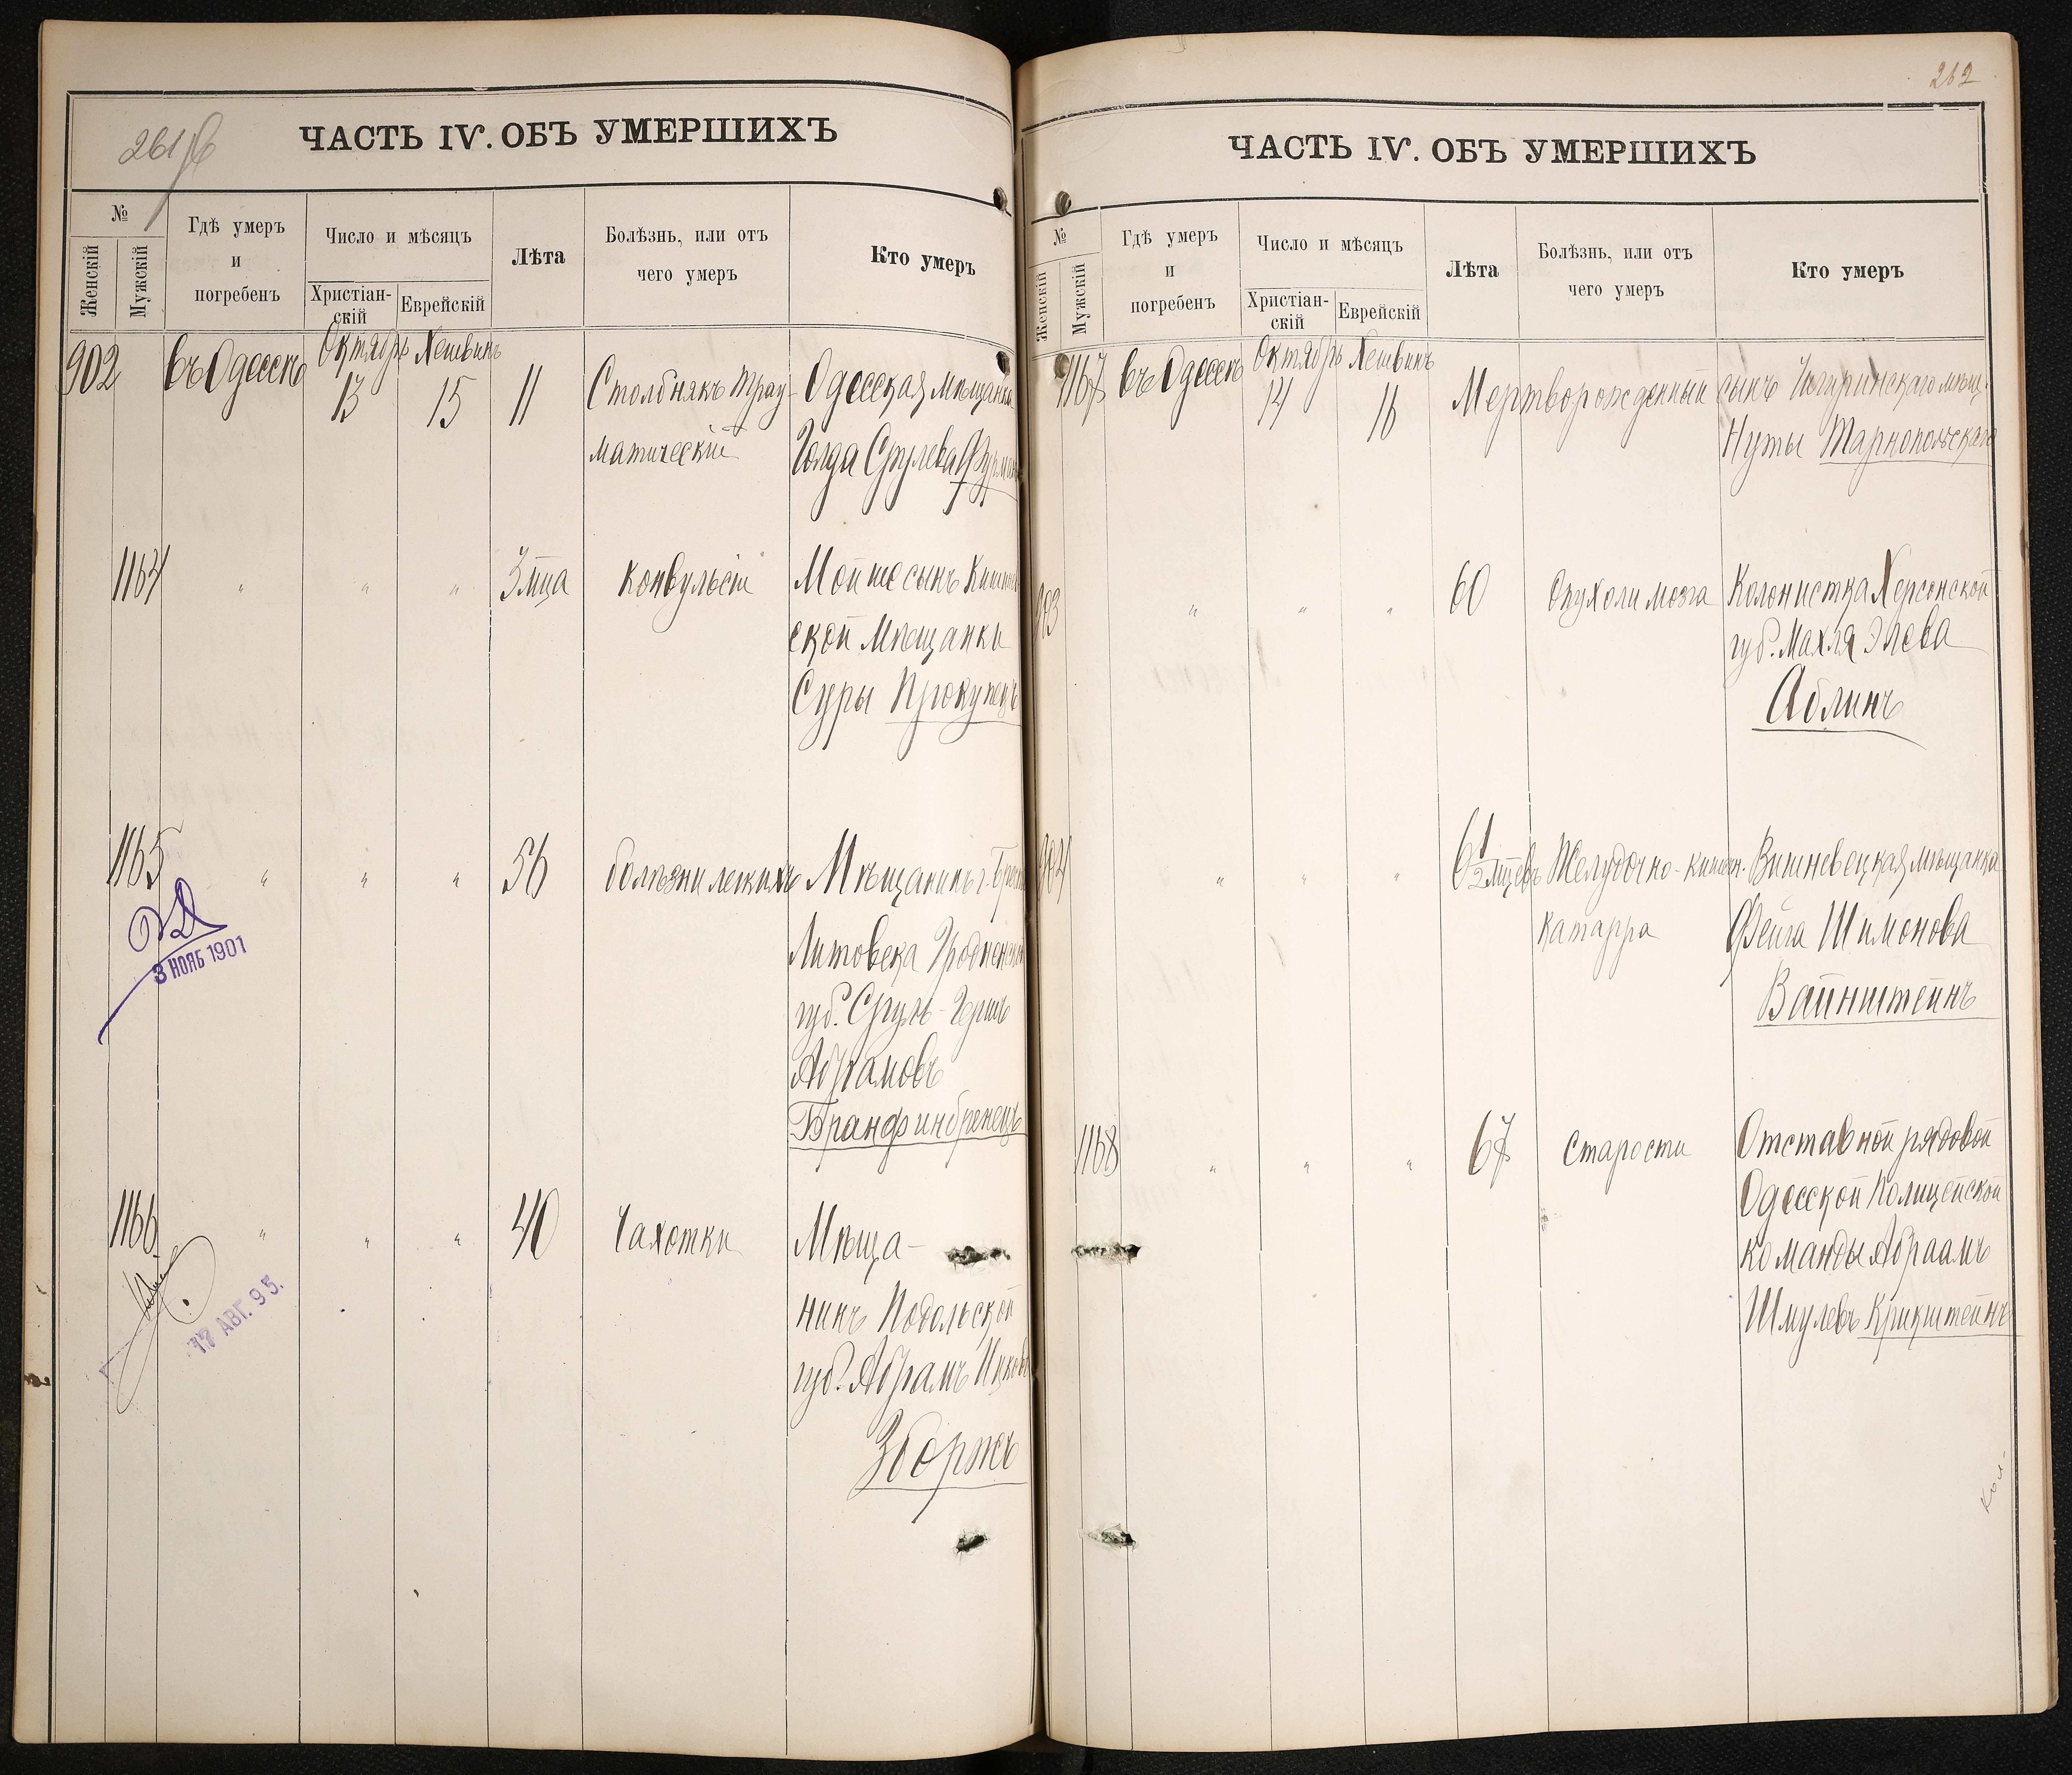 261 об
ЧАСТЬ IV. ОБЪ УМЕРШИХЪ
№
Женскій
Мужскій
Гдѣ умеръ
и
погребенъ
Число и мѣсяцъ
Христіан-
скій
Еврейскій
Лѣта
Болѣзнь, или отъ
чего умеръ
Кто умеръ
902 въ Одессѣ Октябрь 13 Хешвинъ 15 11 Столбнякъ трау- Одесская мѣщанка
матическій Голда Срулева Фурман
1164 " " " 3 мца Конвульсіи Мойше сынъ Кишин
ской Мѣщанки
Суры Прокупецъ
1165 " " " 56 болѣзни легкихъ Мѣщанинъ г. Брест
Литовска Гродненской
губ. Сруль-Герш
Абрамовъ
Бранфинбренецъ
3 НОЯБ 1901
1166 " " " 40 Чахотки Мѣща-
нинъ Подольской
губ. Абрамъ Ицковъ
Зборжъ
17 АВГ. 95.
262
ЧАСТЬ IV. ОБЪ УМЕРШИХЪ
№
Женскій
Мужскій
Гдѣ умеръ
и
погребенъ
Число и мѣсяцъ
Христіан-
скій
Еврейскій
Лѣта
Болѣзнь, или отъ
чего умеръ
Кто умеръ
1167 въ Одессѣ Октябрь 14 Хешвинъ 16 Мертворожденный сынъ Чигиринскаго мѣщ.
Нуты Тарнопольскаго
903 " " " 60 Опухоли мозга Колонистка Херсонской
губ. Махля Элева
Аблинъ
904 " " " 6 1/2 мцевъ Желудочно-кишеч. Вишневецкая мѣщанка
катарра Фейга Шимонова
Вайнштейнъ
1168 " " " 67 Старости Отставной рядовой
Одесской Полицейской
команды Абраамъ
Шмулевъ Крикштейнъ
Кол.